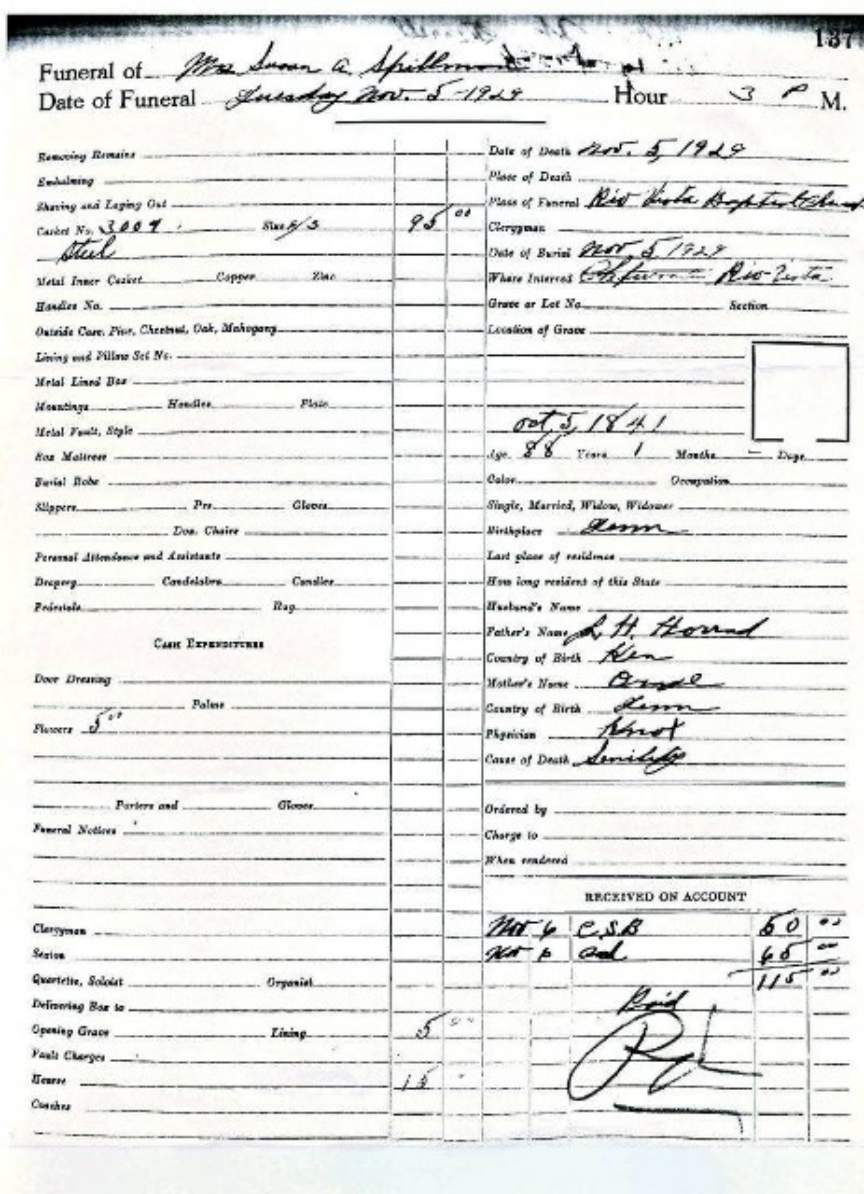 137
Funeral of Mrs Susan A. Spillman
Date of Funeral Tuesday Nov. 5-1929 Hour 3 P M.
Removing Remains
Embalming
Shaving and Laying Out
Casket No. 3009 Size 6/3 95 00
Steel
Metal Inner Casket Copper Zinc
Handles No.
Outside Case, Pine, Chestnut, Oak, Mahogany
Lining and Pillow Set No.
Metal Lined Box
Mountings Handles Plate
Metal Vault, Style
Box Mattress
Burial Robe
Slippers Prs. Gloves
Doz. Chairs
Personal Attendance and Assistants
Drapery Candelabra Candles
Pedestals Rug
CASH EXPENDITURES
Door Dressing
Palms
Flowers 5 00
Porters and Gloves
Funeral Notices
Clergyman
Sexton
Quartette, Soloist Organist
Delivering Box to
Opening Grave Lining 5 00
Vault Charges
Hearse 15
Coaches
Date of Death Nov. 5, 1929
Place of Death
Place of Funeral Rio Vista Baptist Church
Clergyman
Date of Burial Nov. 5 1929
Where Interred Rio-Vista
Grave or Lot No. Section
Location of Grave
Oct, 5, 1841
Age 88 Years 1 Months - Days
Color Occupation
Single, Married, Widow, Widower
Birthplace Tenn
Last place of residence
How long resident of this State
Husband's Name
Father's Name H.
Country of Birth Ken
Mother's Name
Country of Birth Tenn
Physician Knox
Cause of Death Senility
Ordered by
Charge to
When rendered
RECEIVED ON ACCOUNT
Nov 6 C.S.B 50 00
Nov 6 65 00
115 00
Paid